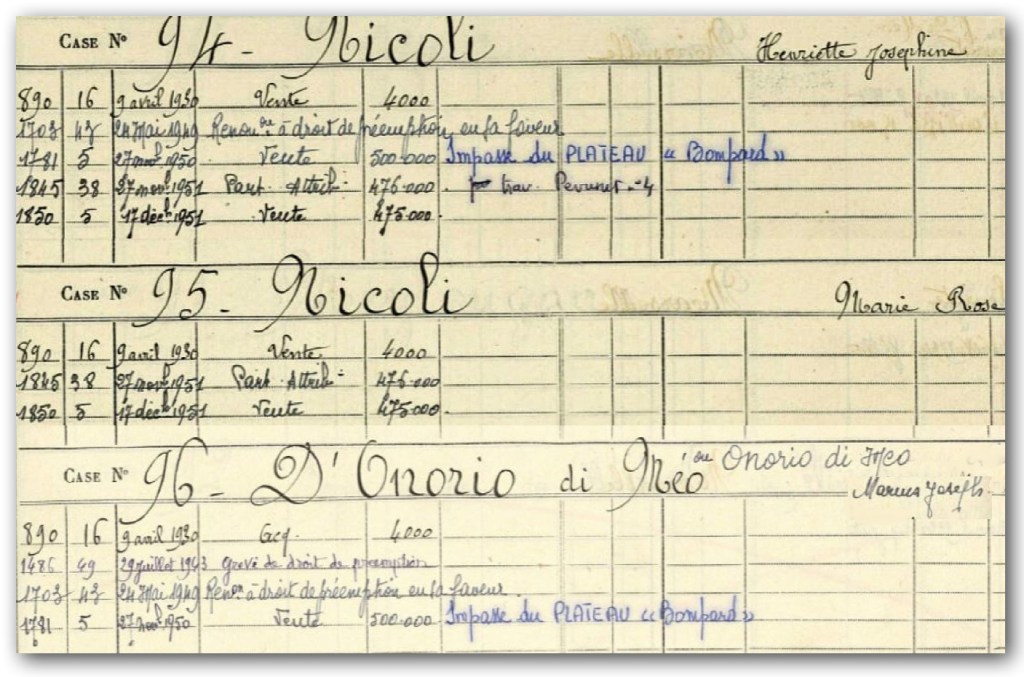 CASE N° 94 - Nicoli Henriette Josephine
890 16 9 avril 1930 Vente 4000
1703 43 24 Mai 1949 Renon on à droit de préemption en sa faveur
1781 5 27 nov. 1950 Vente 500.000 Impasse du PLATEAU « Bompard »
1845 38 27 nov. 1951 Part. Attrib. 476.000 trav.
1850 5 17 déc. 1951 Vente 475.000.
CASE N° 95. Nicoli Marie Rose
890 16 9 avril 1930 Vente 4000
1845 38 27 nov. 1951 Part. Attrib. 476.000
1850 5 17 déc. 1951 Vente 475.000.
CASE N° 96 - D'Onorio di Méo ou Onorio di Meo
Marius Joseph
890 16 9 avril 1930 Acq. 4000
1486 49 29 juillet 1943 Grevé de droit de préemption
1703 43 24 Mai 1949 Renon à droit de préemption en sa faveur.
1781 5 27 nov. 1950 Vente 500.000 Impasse du PLATEAU « Bompard »